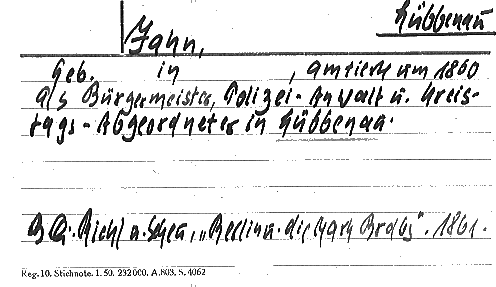 Lübbenau
Jahn,
Geb. in , amtierte um 1860
als Bürgermeister, Polizei-Anwalt u. Kreis-
tags-Abgeordneter in Lübbenau.
BQ. Riehl u. Scheu, „Berlin u. die Mark Brdbg". 1861.
Reg. 10. Stichnote. 1. 50. 232000. A.803. S. 4062